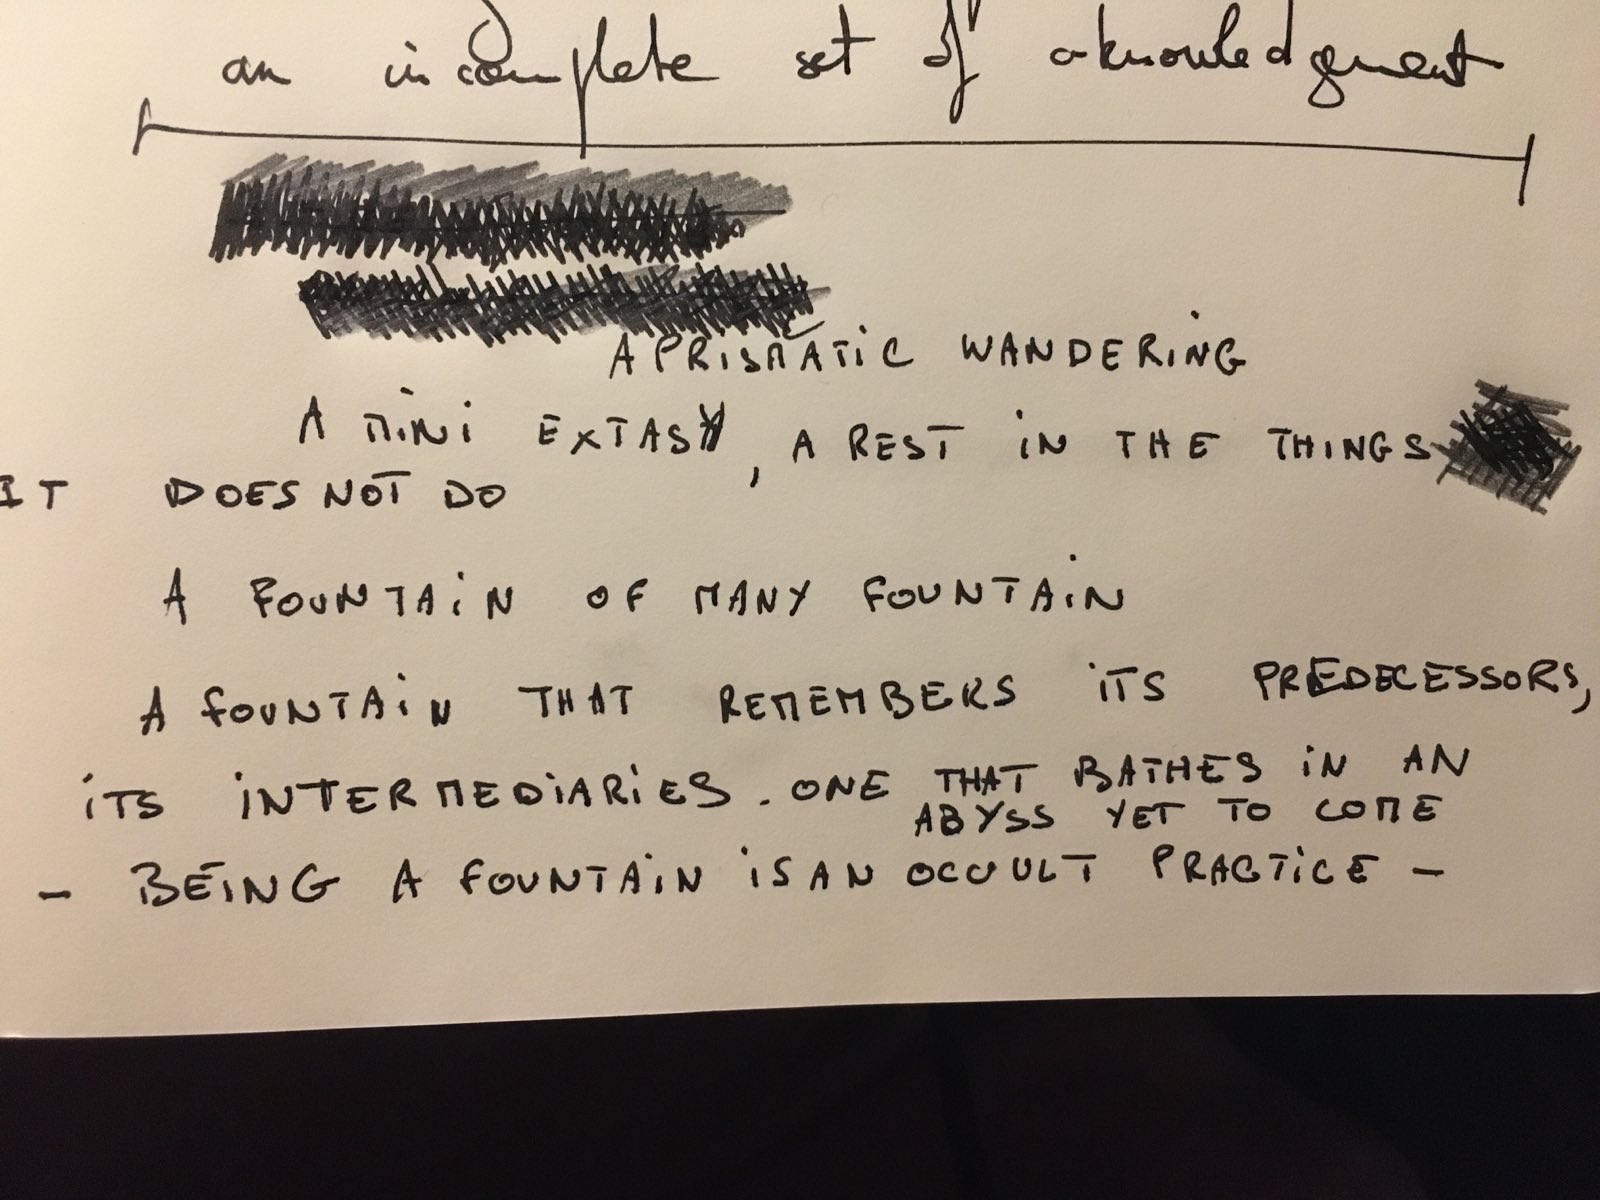 an incomplete set of aknowledgment
A PRISMATIC WANDERING
A MINI EXTASY, A REST IN THE THINGS
IT DOES NOT DO
A FOUNTAIN OF MANY FOUNTAIN
A FOUNTAIN THAT REMEMBERS ITS PREDECESSORS,
ITS INTERMEDIARIES. ONE THAT BATHES IN AN
ABYSS YET TO COME
- BEING A FOUNTAIN IS AN OCCULT PRACTICE -